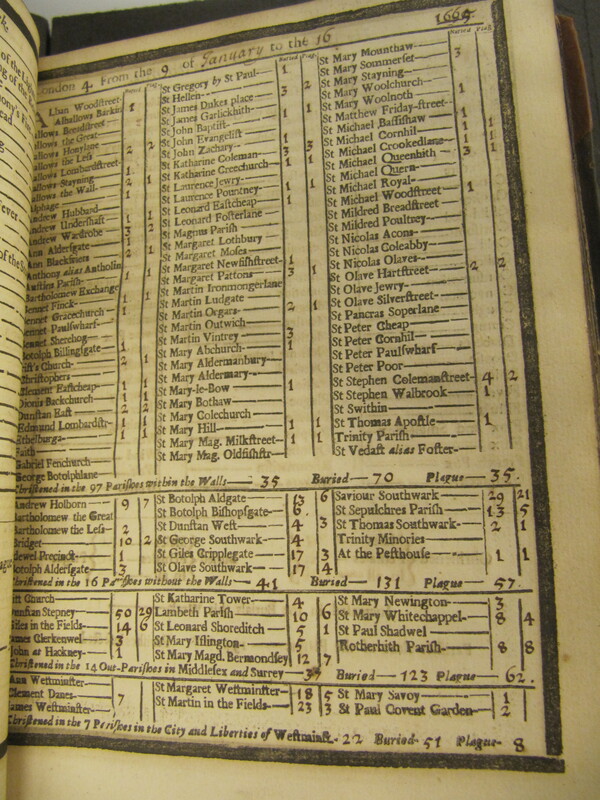 London 4. From the 9 of January to the 16 1665
Buried Plag.
Lban Woodstreet- 1
Alhallows Barkin
allows Breadstreet
allows the Great 2
allows Honylane
allows the Less 2 2
allows Lombardstreet
allows Stayning 1
allows the Wall 2 1
Alphage 1
Andrew Hubbard
Andrew Undershaft 1 1
Andrew Wardrobe 3 2
Ann Aldersgate 1
Ann Blackfriers 2 1
Anthony alias Antholin
Austins Parish
Bartholomew Exchange 1 1
Bennet Finck
Bennet Gracechurch 1
Bennet Paulswharf
Bennet Sherehog
Botolph Billingsgate 1
Christ's Church 2 1
Christophers
Clement Eastcheap 1 1
Dionis Backchurch 1 1
Dunstan East 2 2
Edmund Lombardstr 1 1
Ethelburga 1 1
Faith
Gabriel Fenchurch
George Botolphlane
St Gregory by St Paul 1
St Hellen 3 2
St James Dukes place
St James Garlickhith 1 1
St John Baptist
St John Evangelist 1
St John Zachary
St Katharine Coleman 3 3
St Katharine Creechurch 1 1
St Laurence Jewry
St Laurence Pountney 1 1
St Leonard Eastcheap
St Leonard Fosterlane
St Magnus Parish
St Margaret Lothbury
St Margaret Moses
St Margaret Newfishstreet 1
St Margaret Pattons 3 1
St Martin Ironmongerlane
St Martin Ludgate
St Martin Orgars 2 1
St Martin Outwich
St Martin Vintrey 3
St Mary Abchurch 1
St Mary Aldermanbury
St Mary Aldermary
St Mary-le-Bow 1
St Mary Bothaw
St Mary Colechurch
St Mary Hill 1 1
St Mary Mag. Milkstreet 1 1
St Mary Mag. Oldfishstr
Buried Plag.
St Mary Mounthaw
St Mary Sommerset 3
St Mary Stayning
St Mary Woolchurch
St Mary Woolnoth
St Matthew Friday-street
St Michael Bassishaw 1 1
St Michael Cornhil 1 1
St Michael Crookedlane
St Michael Queenhith 3 1
St Michael Quern
St Michael Royal
St Michael Woodstreet 1
St Mildred Breadstreet
St Mildred Poultney
St Nicolas Acons
St Nicolas Coleabby
St Nicolas Olaves
St Olave Hartstreet 2 2
St Olave Jewry
St Olave Silverstreet
St Pancras Soperlane
St Peter Cheap
St Peter Cornhil
St Peter Paulswharf
St Peter Poor
St Stephen Colemanstreet 4 2
St Stephen Walbrook 1
St Swithin
St Thomas Apostle 1
Trinity Parish
St Vedast alias Foster
Christened in the 97 Parishes within the Walls 35 Buried 70 Plague 35.
Andrew Holborn 9 7
Bartholomew the Great
Bartholomew the Less 2
Bridget 10 2
Bridewel Precinct 1
Botolph Aldersgate 3
St Botolph Aldgate 13 6
St Botolph Bishopsgate 6
St Dunstan West 4 3
St George Southwark 4
St Giles Cripplegate 17 3
St Olave Southwark 17 4
Saviour Southwark 29 21
St Sepulchres Parish 13 5
St Thomas Southwark 2 1
Trinity Minories
At the Pesthouse 1 1
Christened in the 16 Parishes without the Walls 41 Buried 131 Plague 57.
Christ Church
Dunstan Stepney 50 29
Giles in the Fields 14 6
James Clerkenwel 3
John at Hackney 1
St Katharine Tower 4
Lambeth Parish 10 6
St Leonard Shoreditch 5 1
St Mary Islington 5
St Mary Magd. Bermondsey 12 7
St Mary Newington 3
St Mary Whitechappel 8 4
St Paul Shadwel
Rotherhith Parish 8 8
Christened in the 14 Out-Parishes in Middlesex and Surrey Buried 123 Plague 62.
Ann Westminster
Clement Danes 7
James Westminster
St Margaret Westminster 18 5
St Martin in the Fields 23 3
St Mary Savoy 1
St Paul Covent Garden 2
Christened in the 7 Parishes in the City and Liberties of Westminst. 22 Buried 51 Plague 8